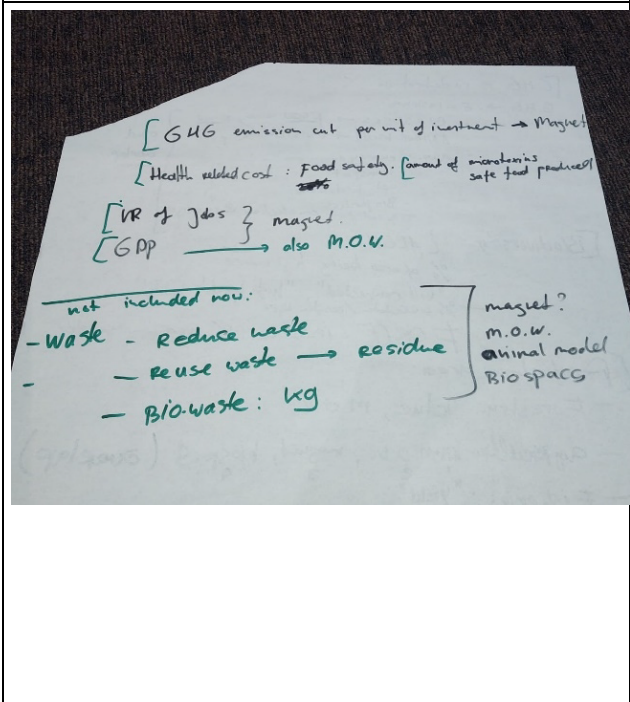 [GHG emission cut per unit of investment → Magnet
[Health related cost : Food safety. [amount of microtoxins
safe food produced
[NR of Jobs } magnet.
[GDP → also M.O.W.
not included now:
- Waste - Reduce waste
- - Reuse waste → Residue
- Bio-waste: kg
magnet?
M.O.W.
animal model
Biospacs